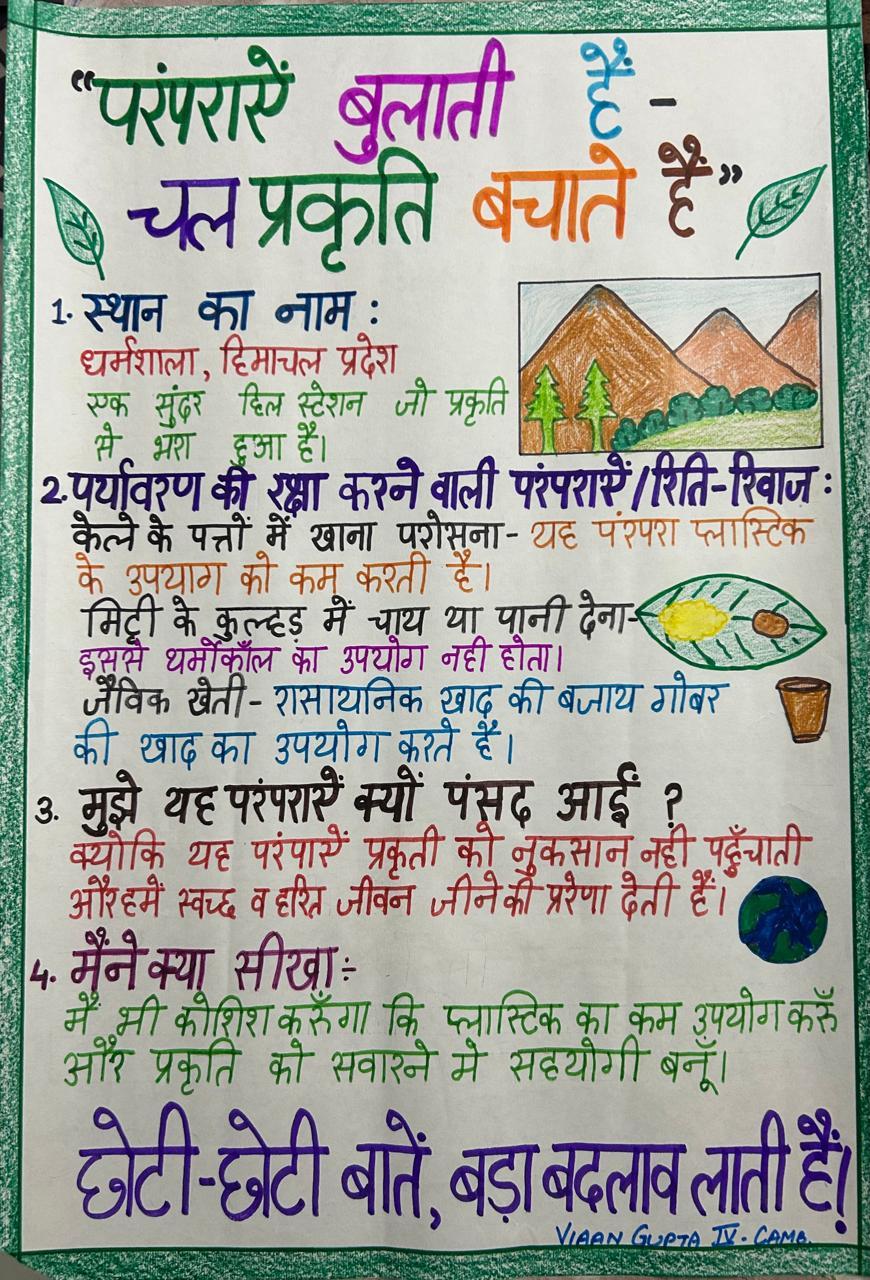 “परंपराएें बुलाती हैं -
चल प्रकृति बचाते हैं”
1. स्थान का नाम :
धर्मशाला, हिमाचल प्रदेश
एक सुंदर हिल स्टेशन जो प्रकृति
से भरा हुआ है।
2. पर्यावरण की रक्षा करने वाली परंपराएें/रिति-रिवाज :
केले के पत्तों में खाना परोसना- यह पंरपरा प्लास्टिक
के उपयाग को कम करती है।
मिट्टी के कुल्हड़ में चाय या पानी देना-
इससे थर्मोकॉल का उपयोग नही होता।
जैविक खेती- रासायनिक खाद की बजाय गोबर
की खाद का उपयोग करते है।
3. मुझे यह परंपराएें क्यों पंसद आईं ?
क्योकि यह परंपाएें प्रकृती को नुकसान नहीं पहुँचाती
और हमें स्वच्छ व हरित जीवन जीने की प्ररेणा देती हैं।
4. मैंने क्या सीखा:-
मैं भी कोशिश करुँगा कि प्लास्टिक का कम उपयोग करुँ
और प्रकृति को सवारने मे सहयोगी बनूँ।
छोटी-छोटी बातें, बड़ा बदलाव लाती हैं!
VIAAN GUPTA IV- CAMB.